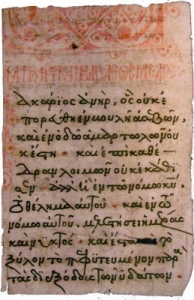 ακάριος ἀνήρ, ὃς οὐκ ἐ
πορεύθη ἐν βουλῆ ἀσεβῶν
καὶ ἐν ὁδῶ ἁμαρτωλῶν οὐ
κ ἔστη · καὶ ἐπὶ καθέ
δρα λοιμῶν οὐκ ἐκάθι
σεν · ἀλλ' ἢ ἐν τῶ νόμω κυ
τὸ θέλημα αὐτοῦ · καὶ ἐν τῶ
νόμω αὐτοῦ μελετήσει ἡμέρας
καὶ νυκτός · καὶ ἔσται ὡς τὸ
ξύλον τὸ πεφυτευμένον πα
ρὰ τὰς διεξόδους τῶν ὑδάτων